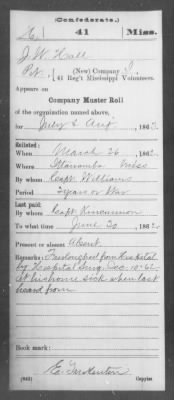 (Confederate.)
H 41 Miss.
J. W. Hall
Pvt., (New) Company
41 Reg't Mississippi Volunteers.
Appears on
Company Muster Roll
of the organization named above,
for July & Aug, 186
Enlisted:
When March 26, 186
Where Ittawamba Miss
By whom Capt Williams
Period 3 years or War
Last paid:
By whom Capt Kincannon
To what time June 30, 186
Present or absent Absent
Remarks: Furloughed from Hospital
by Hospital Surg. Dec. 10-62.
At his home sick when last
heard from
Book mark:
(642) Copyist.